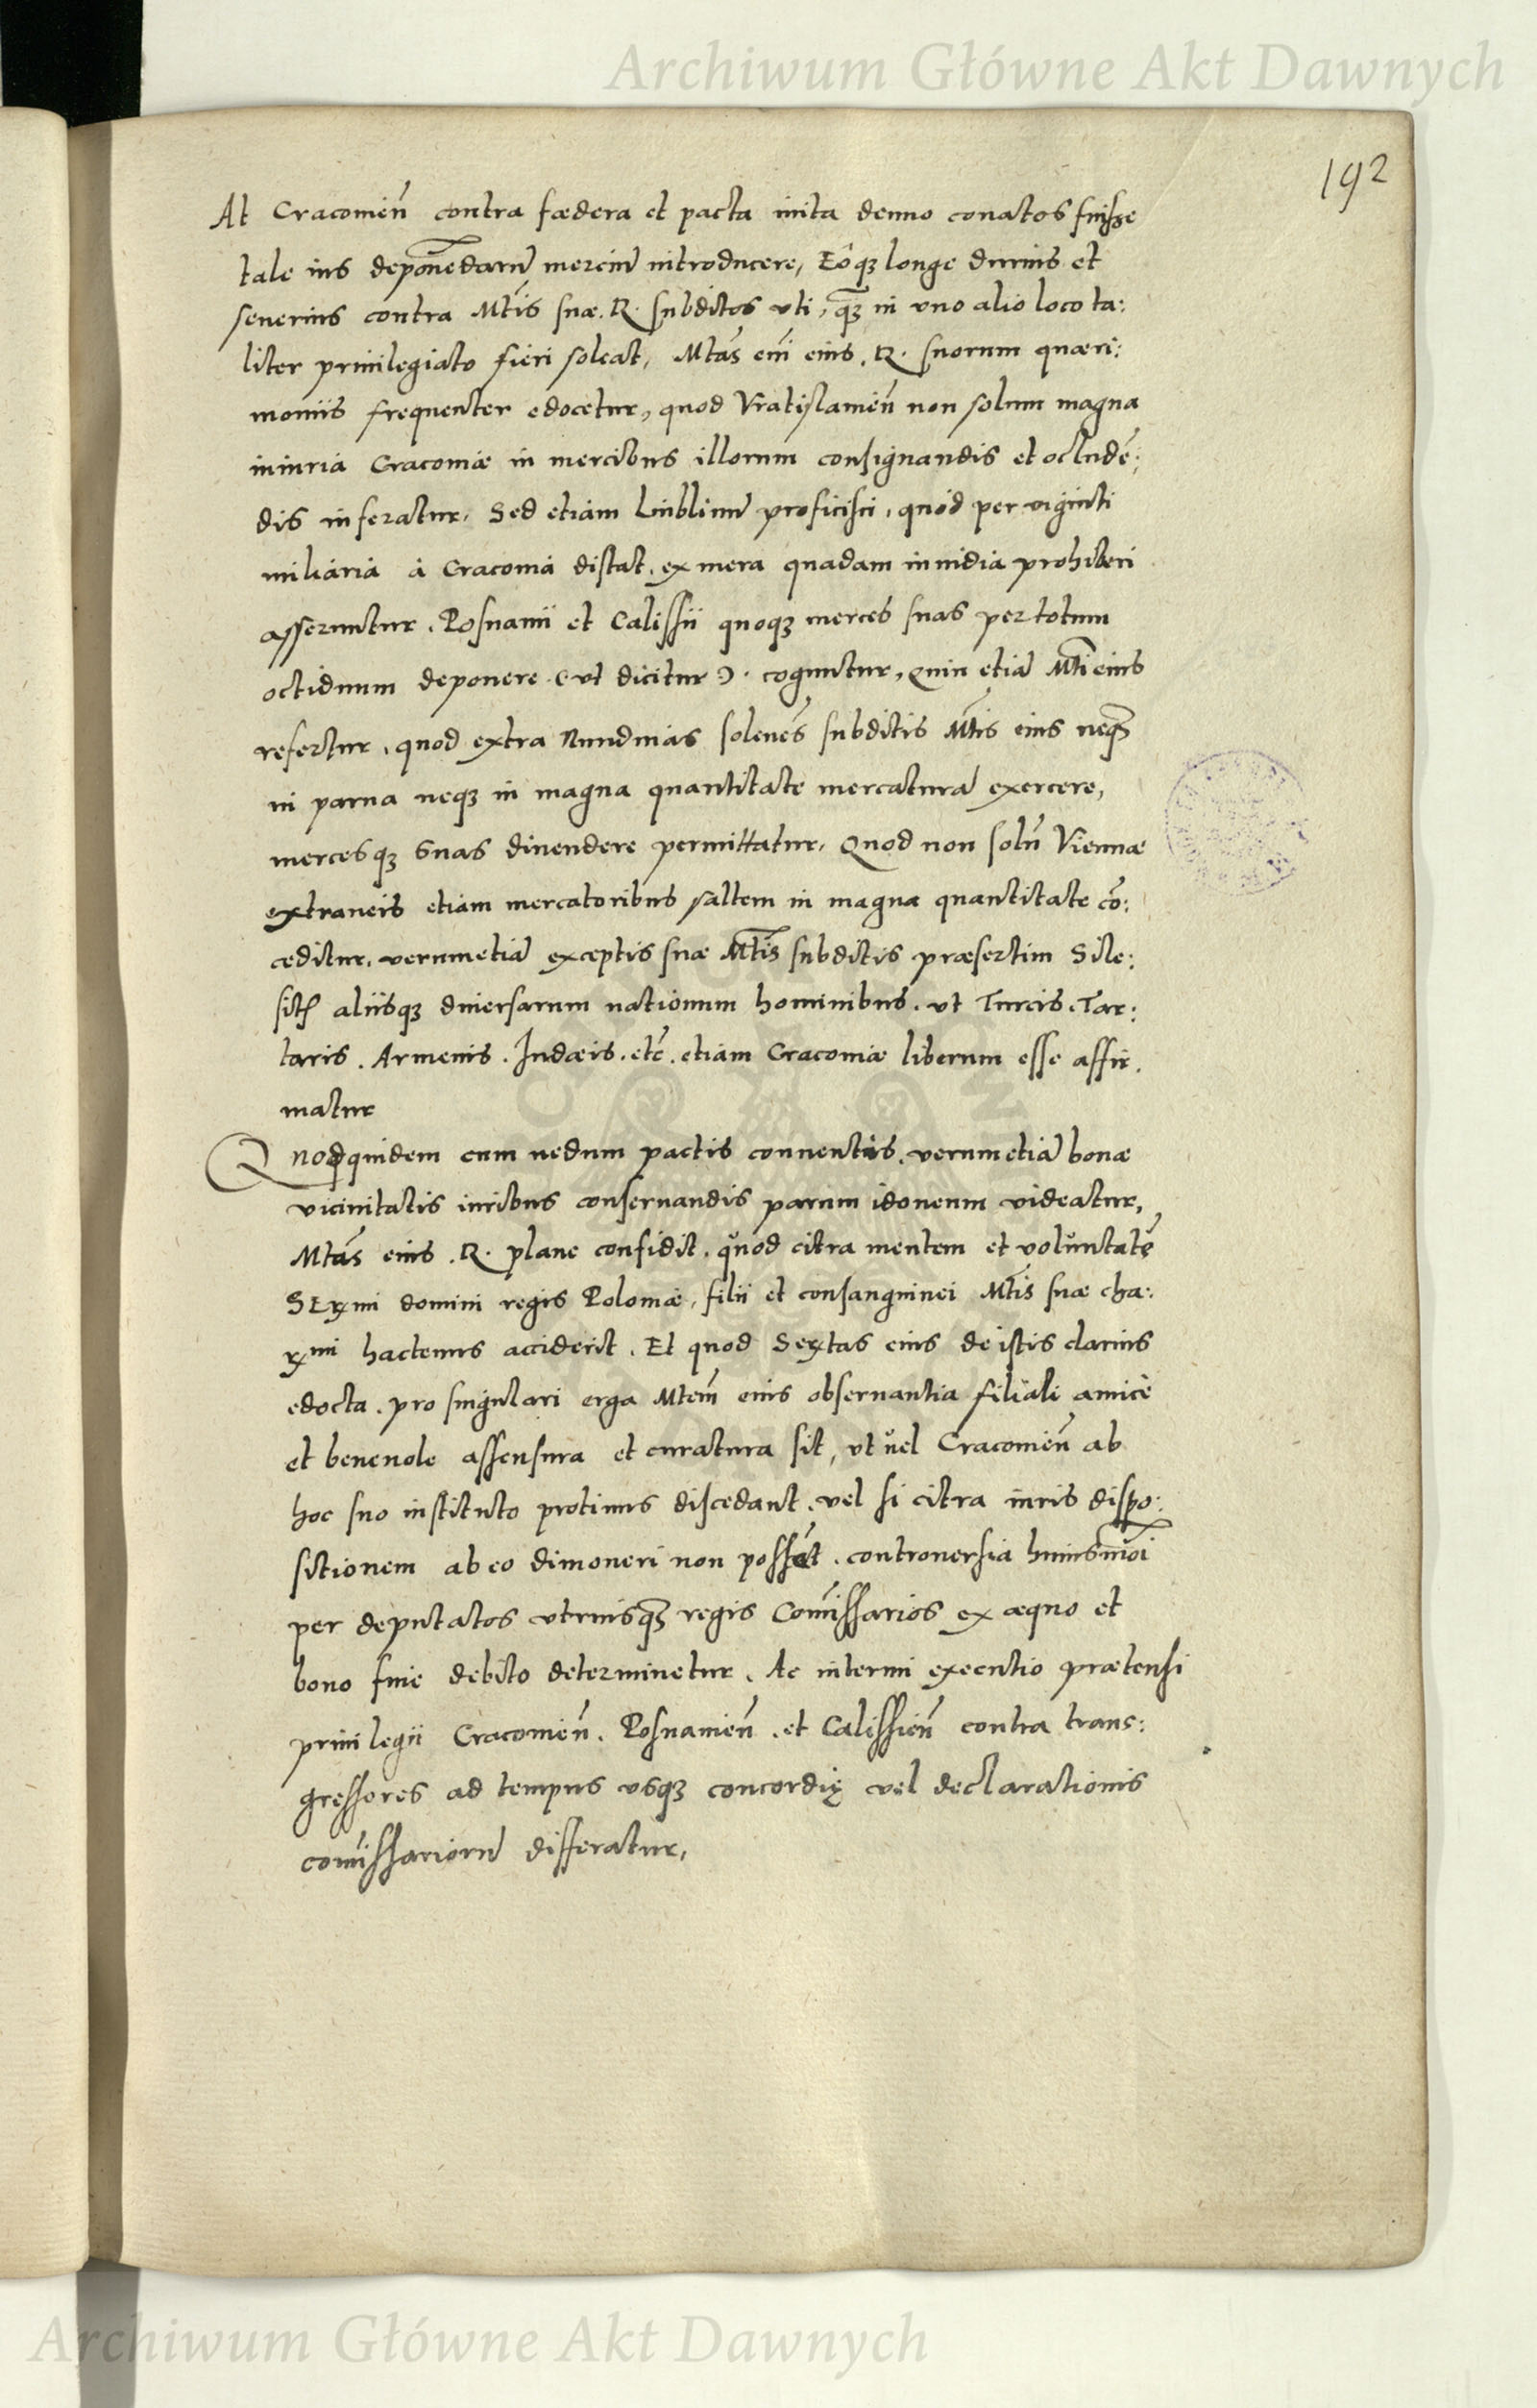 Archiwum Główne Akt Dawnych
192
At Cracovień contra fœdera et pacta inita denuo conatos fuisse
tale ius deponēdarū merciū introducere, Eoq; longe durius et
severius contra Mtis suæ. R. subditos vti, q̃ in vno alio loco ta:
liter privilegiato fieri soleat, Mtas eni eius. R. suorum quæri:
moniis frequenter edocetur, quod Vratislavień non solum magna
iniuria Cracoviæ in mercibus illorum consignandis et occludē:
dis inferatur, Sed etiam Lublinū proficisci, quod per viginti
miliaria à Cracovia distat, ex mera quadam invidia prohiberi
asseruntur. Posnanii et Calissii quoq; merces suas per totum
octiduum deponere (ut dicitur). coguntur, Quin etiā Mti eius
refertur, quod extra Nundinas solenēs subditis Mtis eius neq;
in parva neq; in magna quantitate mercaturā exercere,
mercesq; suas divendere permittatur, Quod non solū Viennæ
extraneis etiam mercatoribus saltem in magna quantitate cō:
ceditur, verumetiā exceptis suæ Mtis subditis præsertim Sile:
sitis aliisq; diversarum nationum hominibus, ut Turcis. Tar:
taris. Armenis. Iudæis. etc̄. etiam Cracoviæ liberum esse affir.
matur
Quodquidem cum nedum pactis conventis, verumetiā bonæ
vicinitatis iuribus conservandis parum idoneum videatur,
Mtas eius. R. plane confidit, quod citra mentem et voluntatē
SErmi domini regis Poloniæ, filii et consanguinei Mtis suæ cha:
rmi hactenus acciderit. Et quod Sertas eius de istis clarius
edocta, pro singulari erga Mtem eius observantia filiali amice
et benevole assensura et curatura sit, ut vel Cracovień ab
hoc suo instituto protinus discedant, vel si citra iuris dispo:
sitionem ab eo dimoveri non possēt, controversia huiusmōi
per deputatos vtriusq; regis Comissarios ex æquo et
bono fine debito determinetur, Ac interim executio prætensi
privilegii Cracovień. Posnanień. et Calissień contra trans:
gressores ad tempus usq; concordię vel declarationis
comissariorū differatur,
Archiwum Główne Akt Dawnych